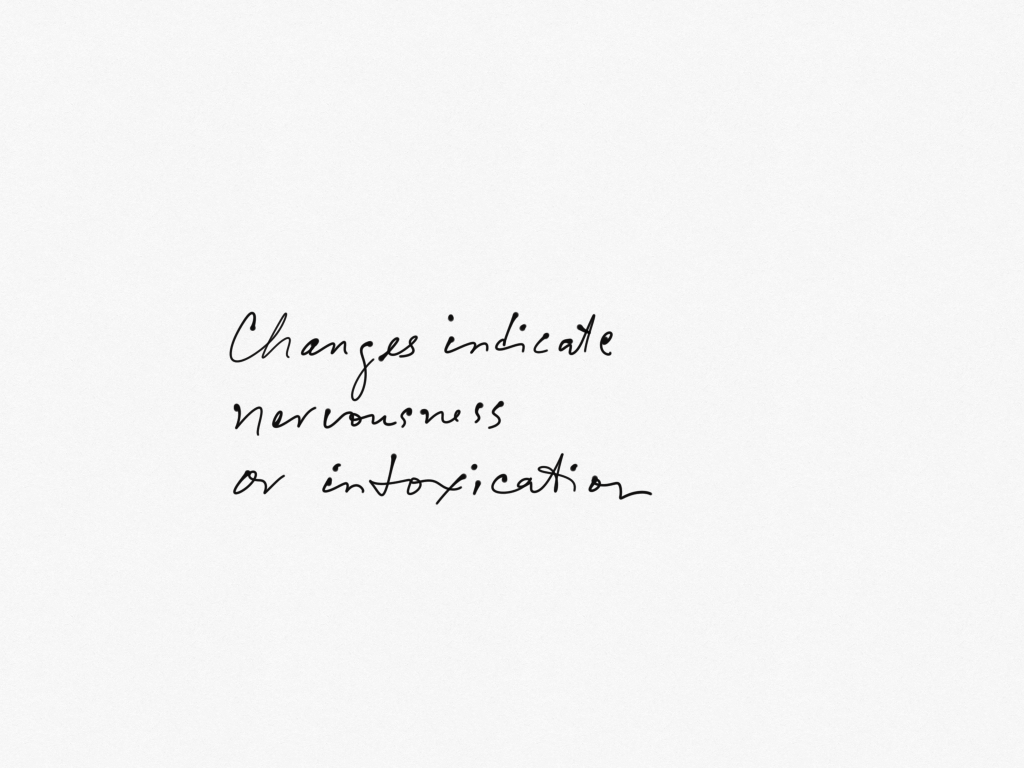 Changes indicate
nervousness
or intoxication